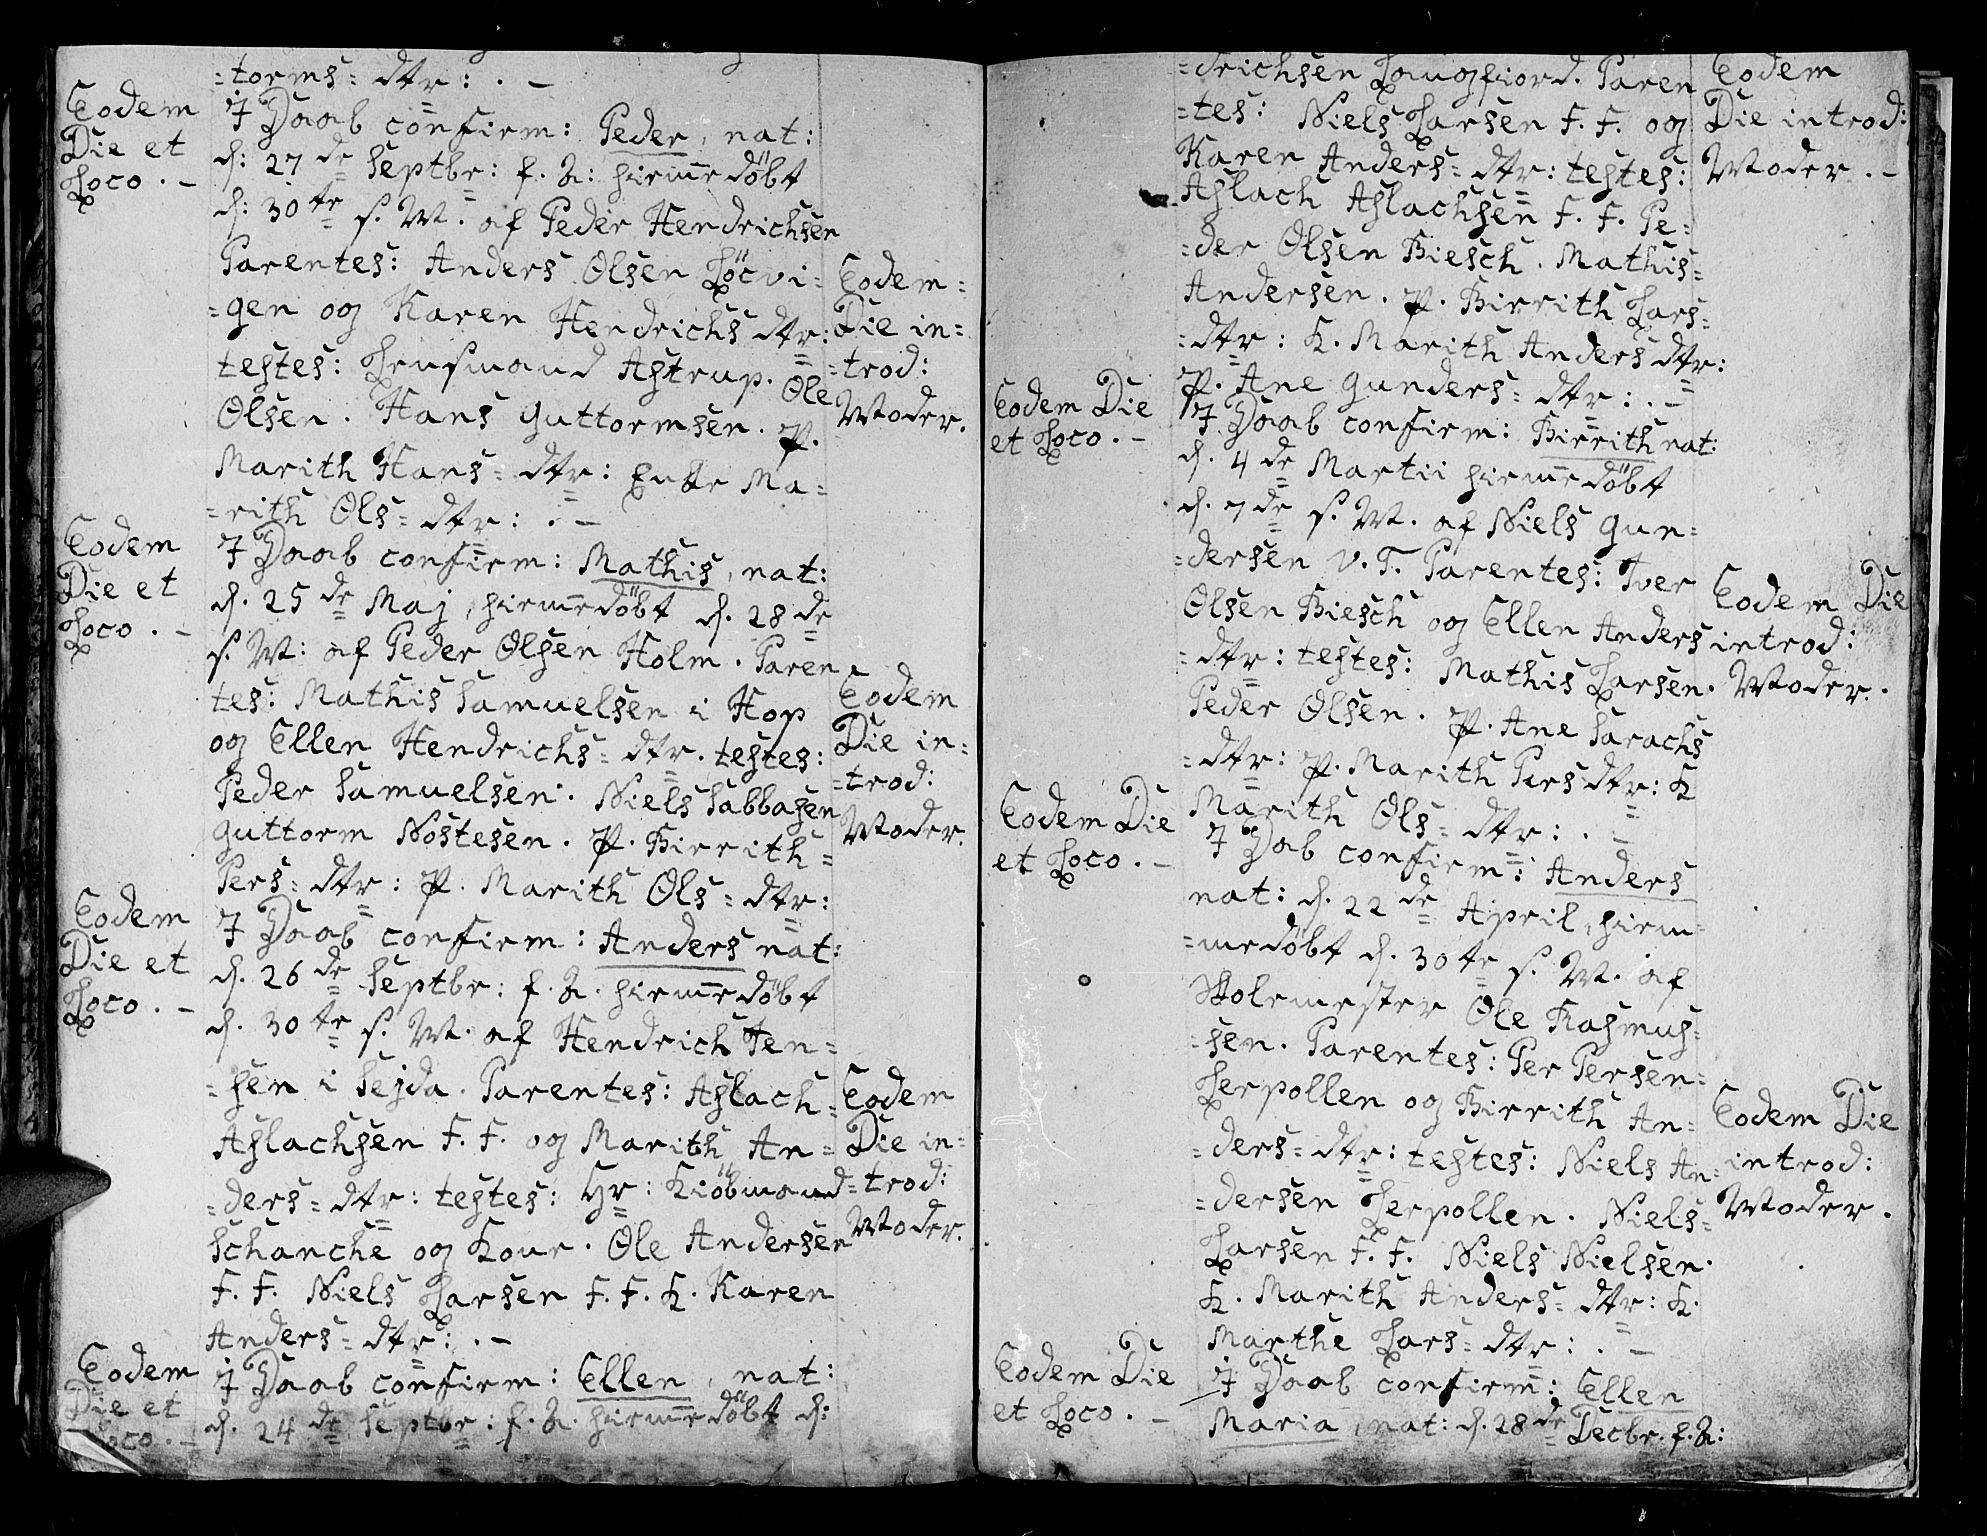 =torms= dtr: . –
Eodem
Die et
Loco . –
I Daab confirm: Peder, nat:
d: 27 de Septbr: f. A: hiemedöbt
d: 30 te s. M. af Peder Hendrichsen
Parentes: Anders Olsen Löcvi=
=gen og Karen Hendrichs dtr:
testes: Lensmand Astrup. Ole
Olsen. Hans Guttormsen. P.
Marith Hans= dtr: Enke Ma=
=rith Ols= dtr: . –
Eodem=
Die in=
=trod:
Moder.
Eodem
Die et
Loco . –
I Daab confirm: Mathis, nat:
d. 25 de Maj, hiemedöbt d. 28 de
s. M: af Peder Olsen Holm. Paren
tes: Mathis Samuelsen i Hop
og Ellen Hendrichs= dtr. testes:
Peder Samuelsen. Niels Sabbasen
Guttorm Nostesen. P. Birrith=
Pers= dtr: P. Marith Ols= dtr:
Eodem
Die in=
=trod:
Moder.
Eodem
Die et
Loco . –
I Daab confirm: Anders nat:
d. 26 de Septbr: f. A. hiemedöbt
d. 30 te s. M. af Hendrich Jen=
=sen i Sejda. Parentes: Aslach
Aslachsen F. F. og Marith An=
=ders= dtr: testes: Hr: Kiöbmand
Schanche og Kone. Ole Andersen
F. F. Niels Larsen F. F. K. Karen
Anders= dtr: . –
Eodem
Die in=
=trod:
Moder.
Eodem
Die et
Loco . –
I Daab confirm: Ellen, nat:
d. 24 de Septbr: f. A. hiemedöbt d:
=drichsen Laugfiord. Paren
=tes: Niels Larsen F. F. og
Karen Anders= dtr: testes:
Aslach Aslachsen F. F. Pe=
=der Olsen Biesch. Mathis=
Andersen. P. Birrith Lars=
=dtr: K. Marith Anders dtr:
P. Ane Gunders= dtr: . –
Eodem
Die introd:
Moder. –
Eodem Die
et Loco. –
I Daab confirm: Birrith nat:
d. 4 de Martii hiemedöbt
d. 7 de s. M. af Niels Gun=
=dersen V. T. Parentes: Iver
Olsen Biesch og Ellen Anders
=dtr: testes: Mathis Larsen.
Peder Olsen. P. Ane Sarachs
=dtr: P. Marith Pers dtr: K
Marith Ols= dtr: . –
Eodem Die
introd:
Moder.
Eodem Die
et Loco. –
I Dab confirm: Anders
nat: d. 22 de April, hiem=
=medöbt d. 30 te s. M. af
Skolemester Ole Rasmus=
=sen. Parentes: Per Persen=
Lerpollen og Birrith An=
=ders= dtr: testes: Niels An=
=dersen Lerpollen. Niels=
Larsen F. F. Niels Nielsen.
K. Marith Anders= dtr: K.
Marthe Lars= dtr: . –
Eodem Die
introd:
Moder.
Eodem Die
et Loco. –
I Daab confirm: Ellen
Maria, nat: d. 28 de Decbr. f. A: